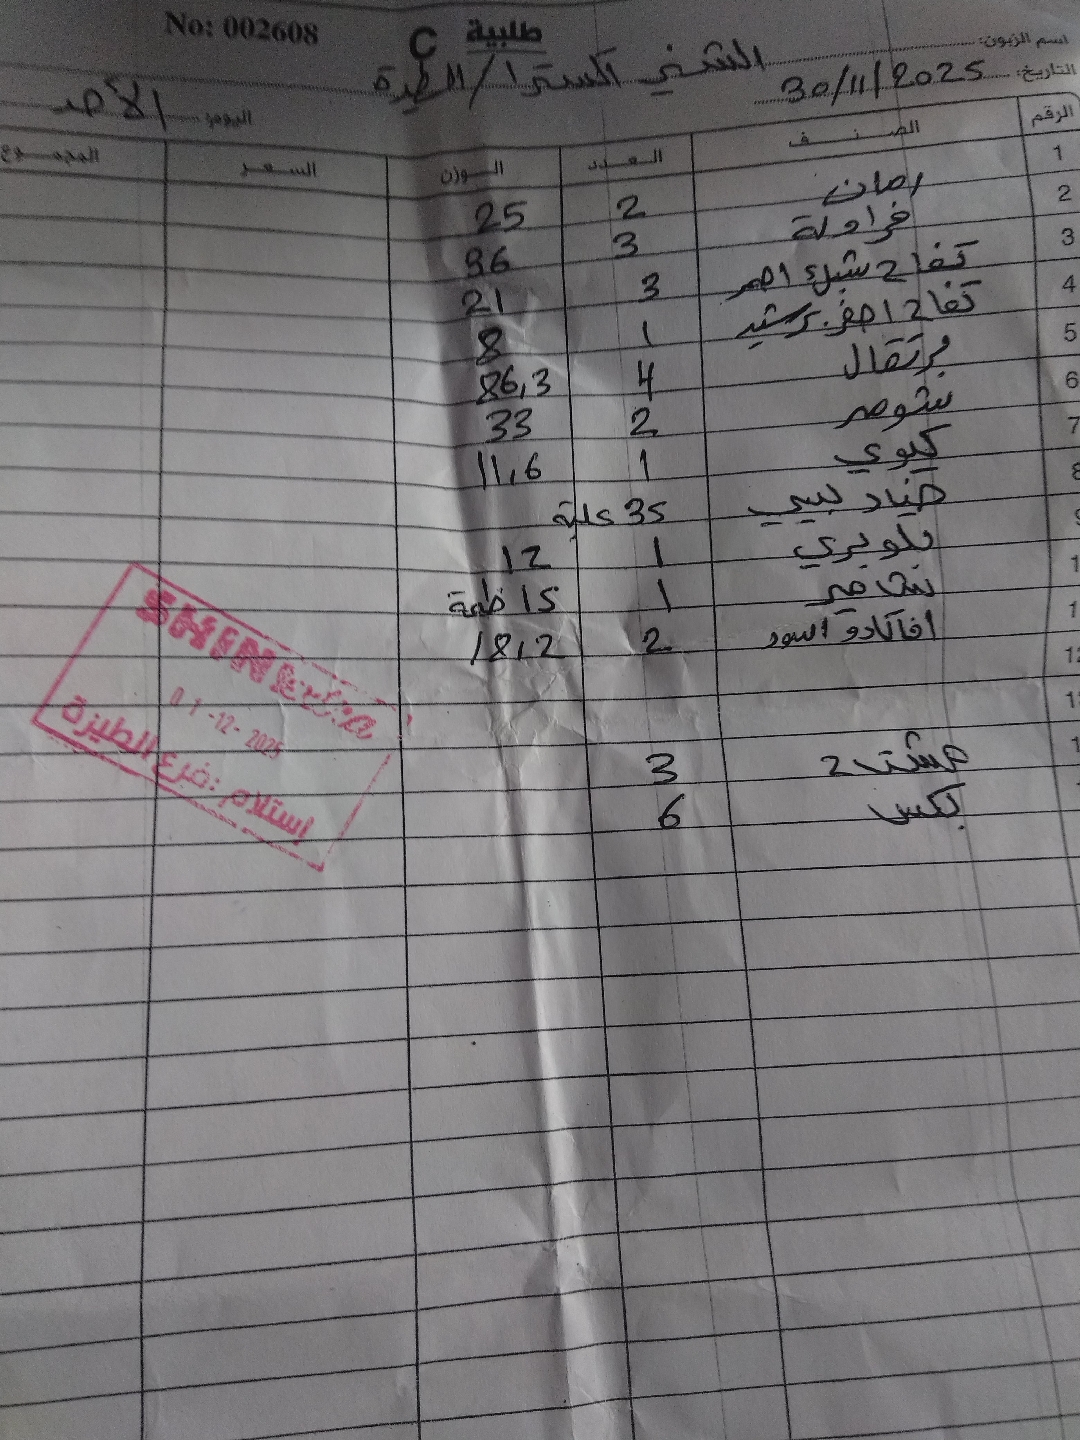 No: 002608
طلبية C
اسم الزبون: الشني اكسترا / الطيرة
التاريخ: 30/11/2025 اليوم: الأحد
الرقم الصنف العدد الوزن السعر المجموع
1 رمان 2 25
2 فراولة 3 36
3 تفاح شيري احمر 3 21
4 تفاح اصفر 1 8
5 برتقال 4 86,3
6 2 33
7 كيوي 1 11,6
8 خيار بيبي 35 علبة
9 بلوبري 1 12
1 1 15
1 افاكادو اسود 2 18,2
12
3
بكس 6
SHINE
01-12-2025
استلام: فرع الطيرة